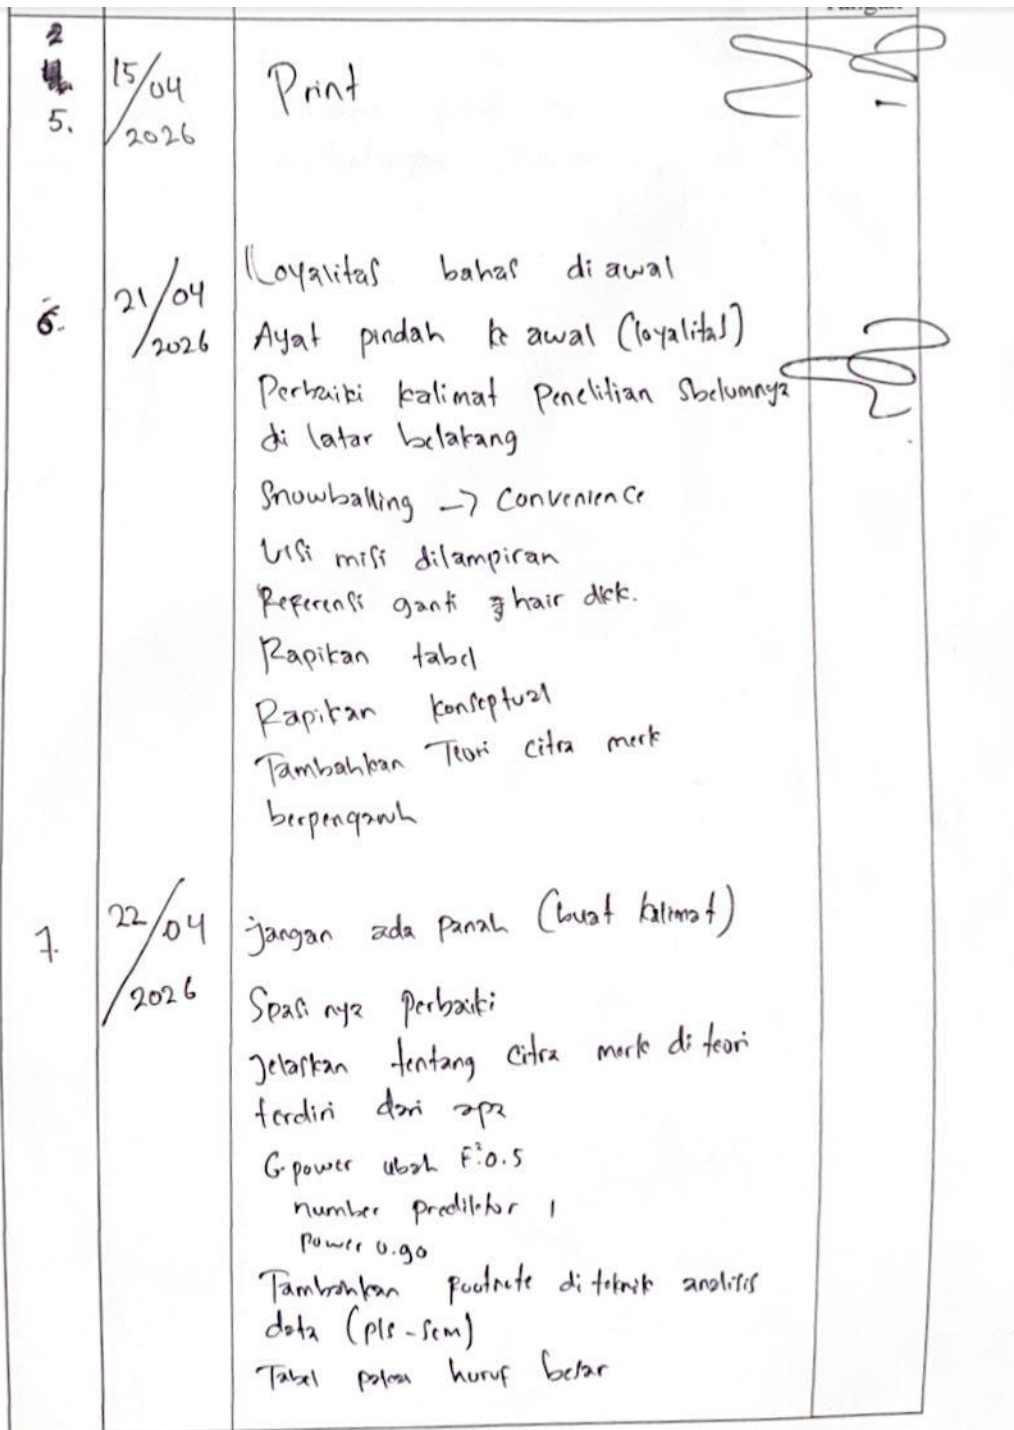 2
5.
15/04
2026
Print
6.
21/04
2026
Loyalitas bahas di awal
Ayat pindah ke awal (loyalitas)
Perbaiki kalimat Penelitian Sbelumnya
di latar belakang
Snowballing -> Convenience
Visi misi dilampiran
Referensi ganti hair dkk.
Rapikan tabel
Rapikan konseptual
Tambahkan Teori citra merk
berpengaruh
7.
22/04
2026
jangan ada panah (buat kalimat)
Spasi nya Perbaiki
Jelaskan tentang Citra merk di teori
terdiri dari apa
G-power ubah F²:0.5
number prediktor 1
Power 0.90
Tambahkan footnote di teknik analisis
data (pls-sem)
Tabel pakai huruf besar